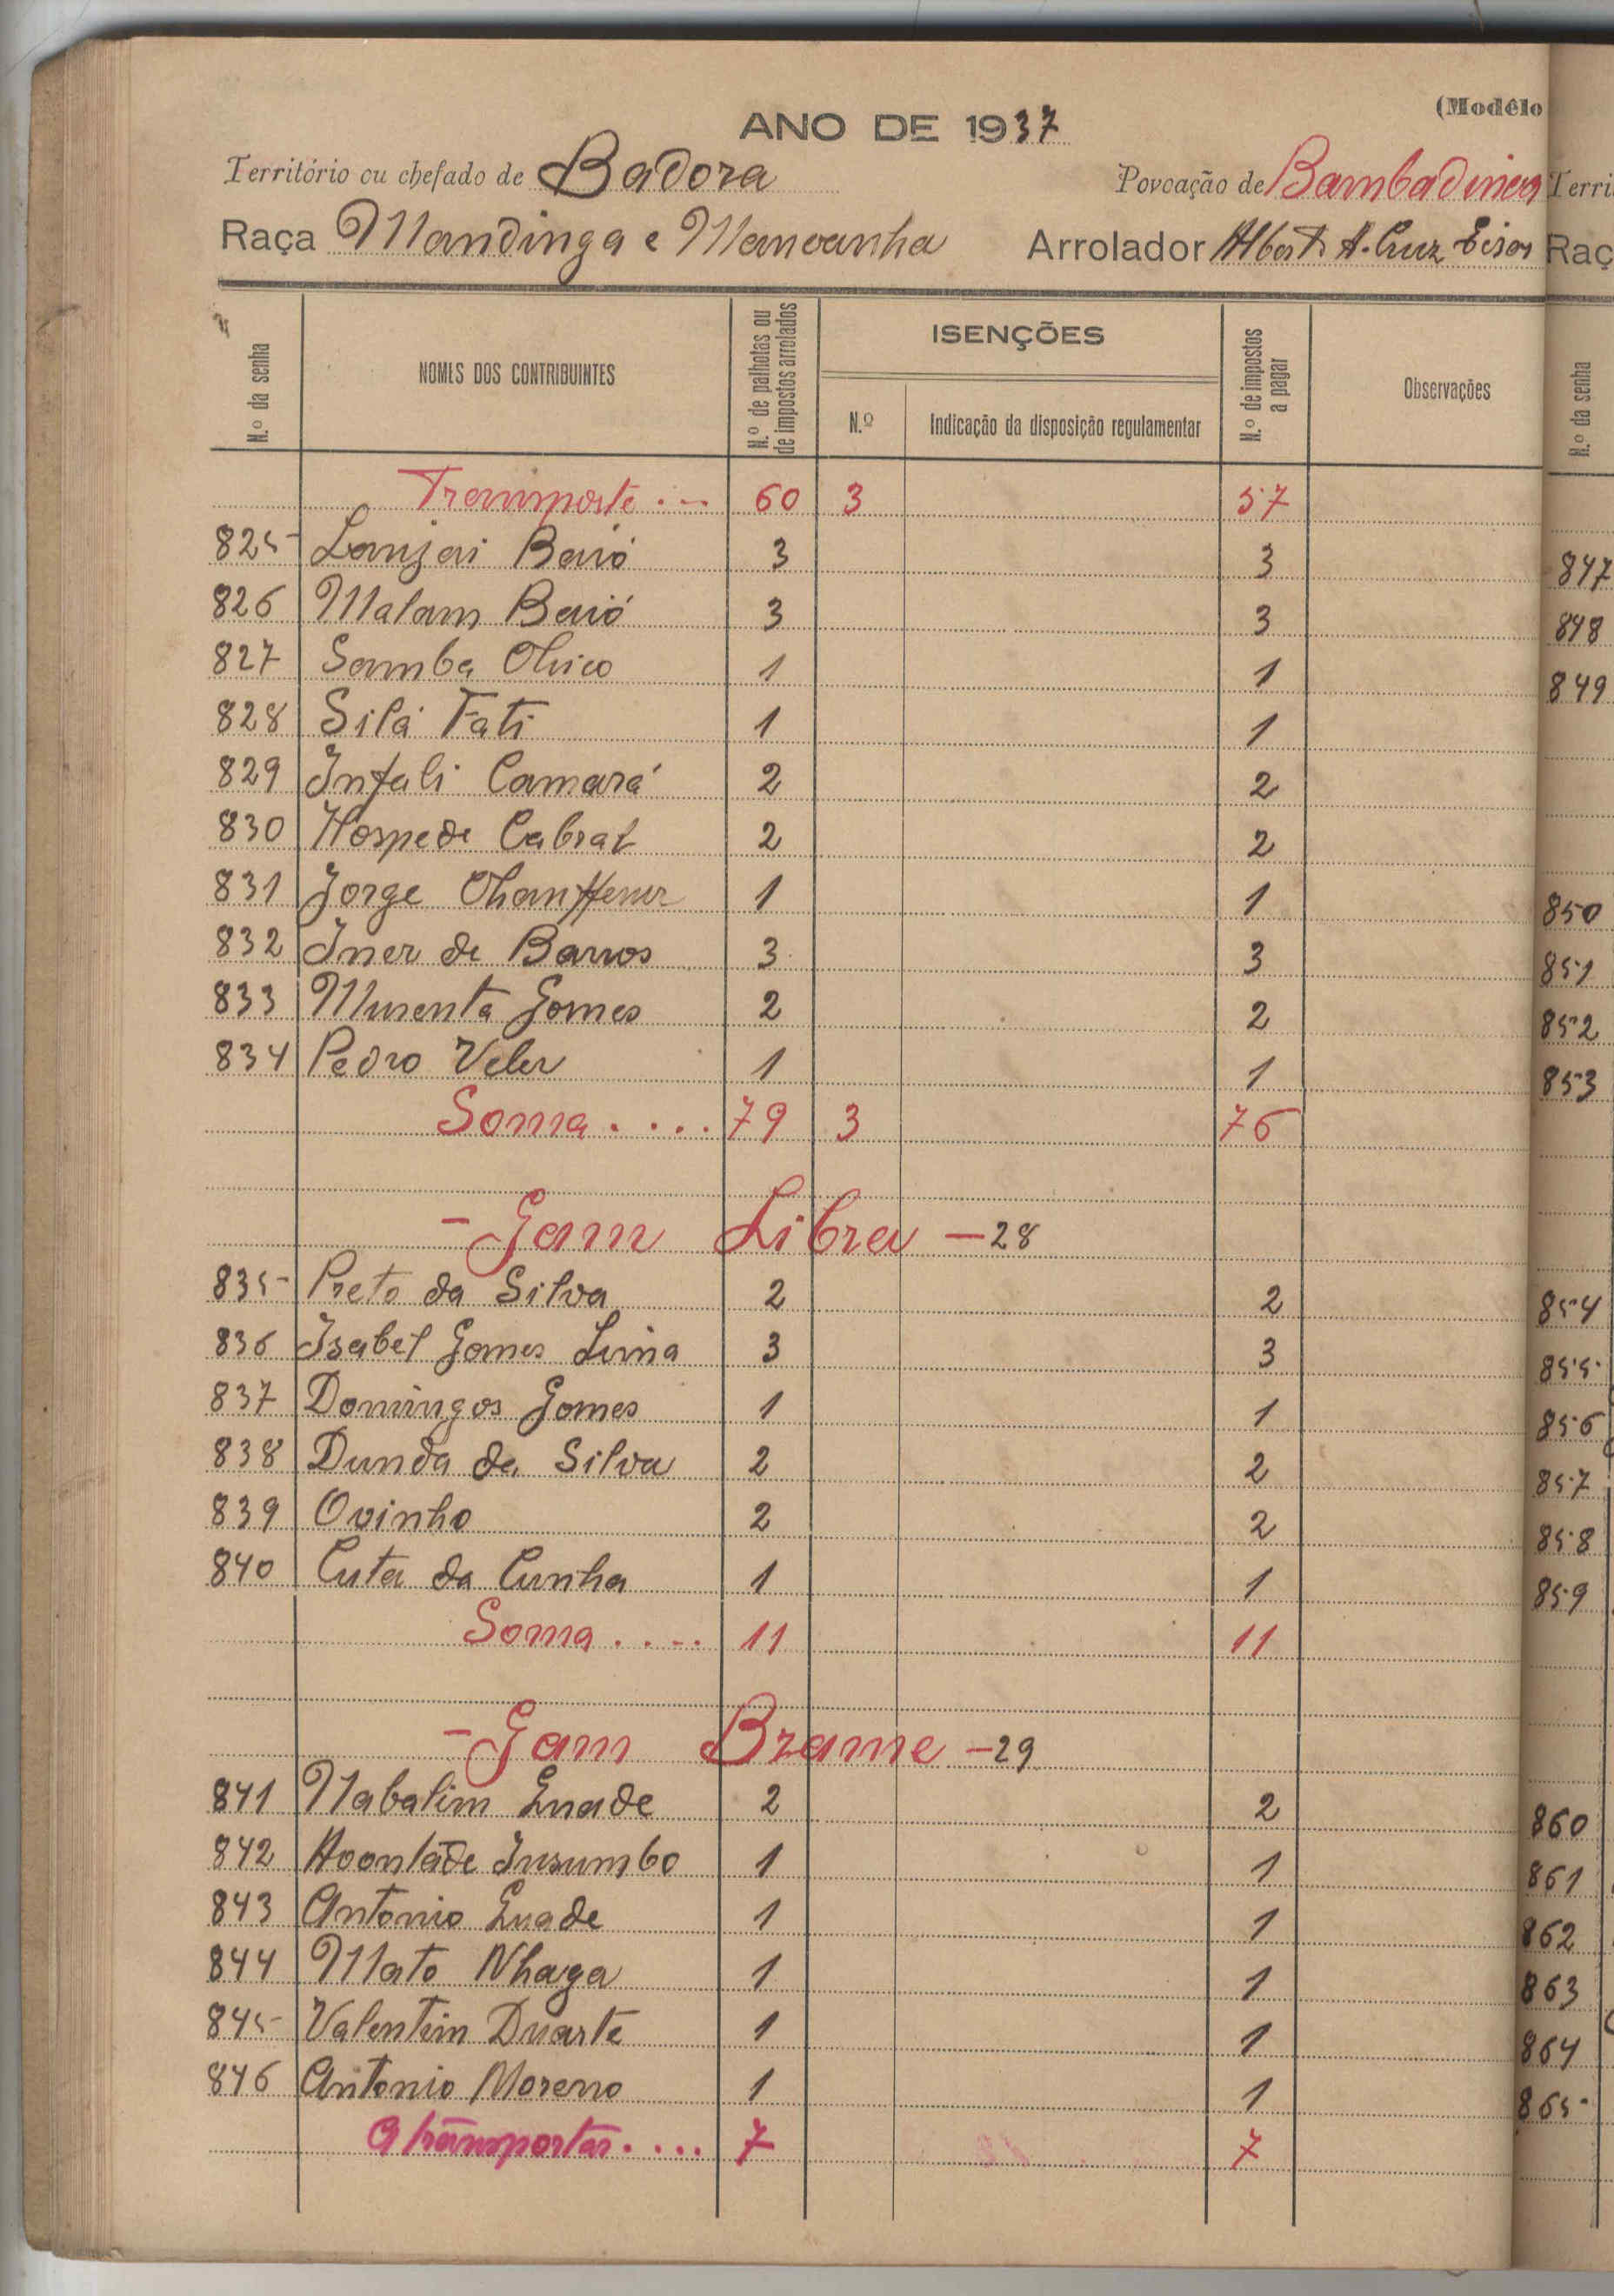 (Modêlo
ANO DE 1937
Território ou chefado de Badora Povoação de Bambadinca
Raça Mandinga e Mancanha Arrolador A. Cruz
N.º da senha NOMES DOS CONTRIBUINTES N.º de palhotas ou de impostos arrolados ISENÇÕES N.º de impostos a pagar Observações
N.º Indicação da disposição regulamentar
Transporte . — 60 3 57
825 Lanjai Baió 3 3
826 Malam Baió 3 3
827 Samba Chico 1 1
828 Silá Fati 1 1
829 Infali Camará 2 2
830 Hospede Cabral 2 2
831 Jorge Chauffeur 1 1
832 Iner de Barros 3 3
833 Musenta Gomes 2 2
834 Pedro 1 1
Soma . . . . 79 3 76
- Gam Libra - 28
835 Preto da Silva 2 2
836 Isabel Gomes Lima 3 3
837 Domingos Gomes 1 1
838 Dunda da Silva 2 2
839 Ovinho 2 2
840 Cuta da Cunha 1 1
Soma . . . . 11 11
- Gam Brame - 29
841 Nabalim 2 2
842 1 1
843 Antonio 1 1
844 Mato Nhaga 1 1
845 Valentim Duarte 1 1
846 Antonio Moreno 1 1
A transportar . . . . 7 7
Terri
Raç
N.º da senha
847
848
849
850
851
852
853
854
855
856
857
858
859
860
861
862
863
864
865